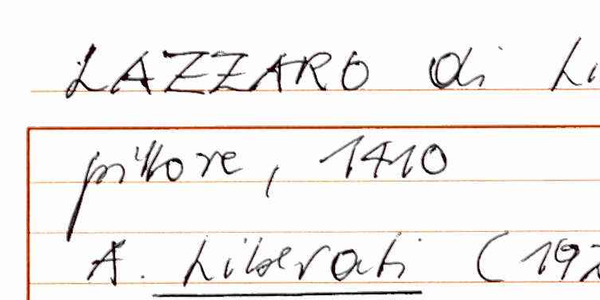 LAZZARO di Li
pittore, 1410
A. Liberati (192